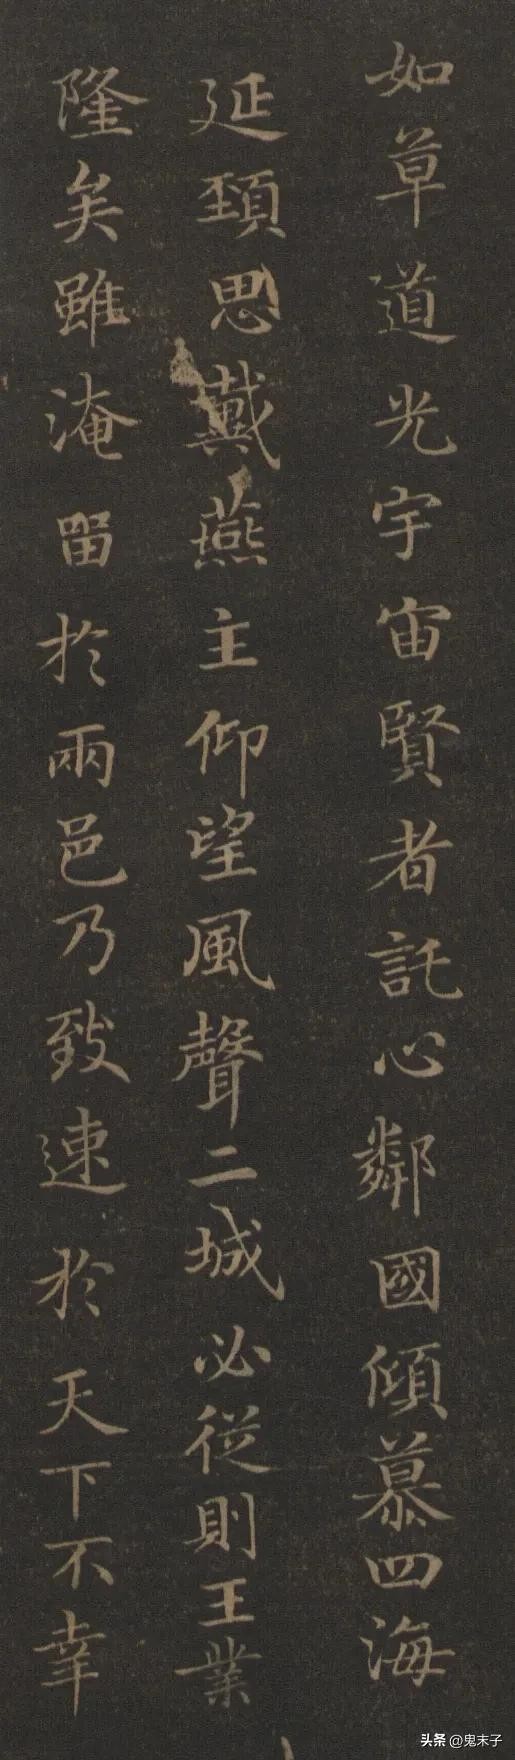 如草道光宇宙賢者託心鄰國傾慕四海
延頚思戴燕主仰望風聲二城必従則王業
隆矣雖淹留於兩邑乃致速於天下不幸
头条 @鬼末子